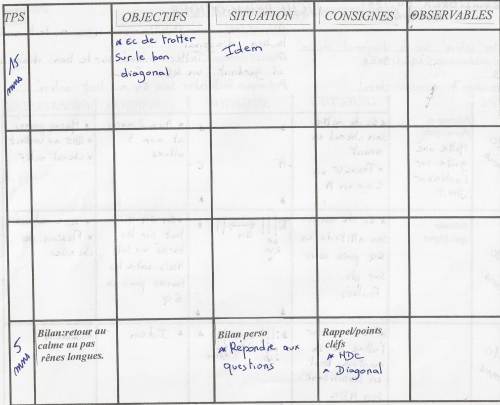 TPS OBJECTIFS SITUATION CONSIGNES OBSERVABLES
15 mns
* EC de trotter
Sur le bon
diagonal
Idem
5 mns
Bilan:retour au
calme au pas
rênes longues.
Bilan perso
* Répondre aux
questions
Rappel/points
cléfs
* HDC
* Diagonal